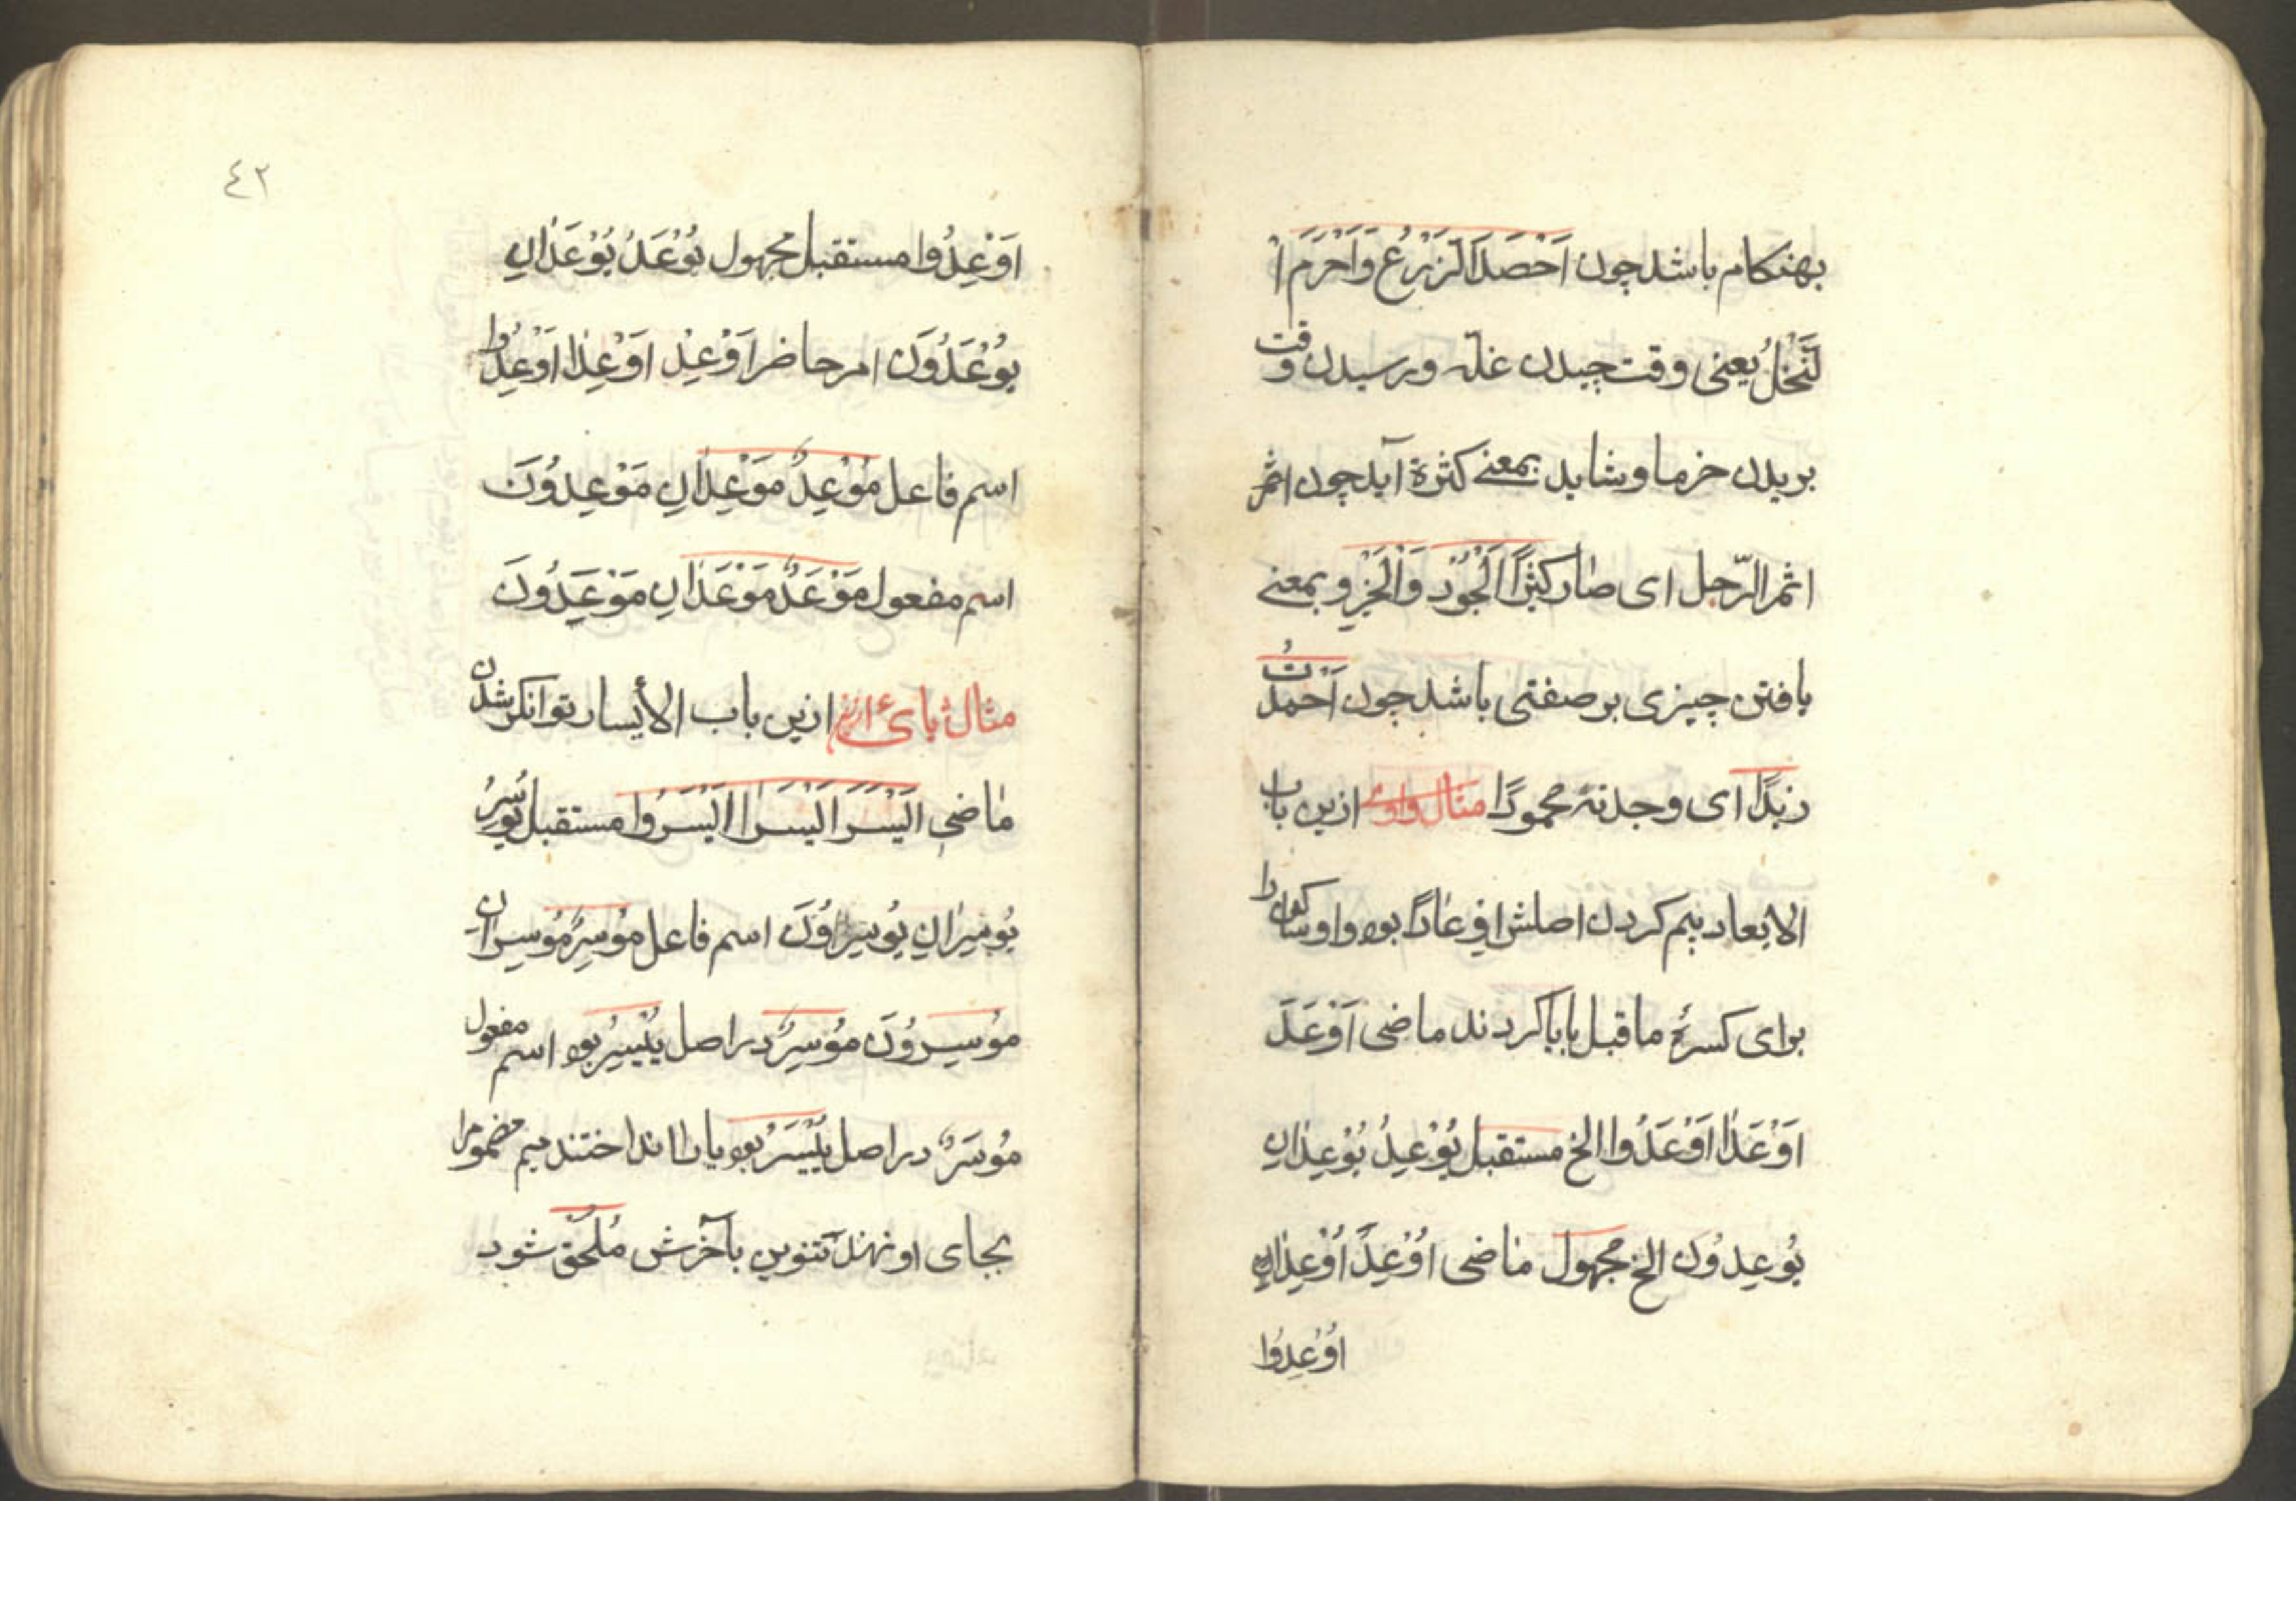 بهنکام باشد چون اَحْصَدَ الزَّرْعُ وَاَحْرَمَ ا
لنَّخْلُ یعنی وقت چیدن غلّه و رسیدن وقت
بریدن خرما و شاید بمعنے کثرة آید چون اثمر
اثمر الرّجل ای صٰار کثیرًا لْجُوْد وَالْخَیْر و بمعنے
یافتن چیزی بر صفتی باشد چون اَحْمَدْتُ
زیدًا ای وجدته محمودًا مثال واوی ازین باب
الایعاد بیم کردن اصلش اِوْعٰادًا بود واو ساکن را
برای کسرۀ ماقبل بایا کردند ماضی اَوْعَدَ
اَوْعَدٰا اَوْعَدُوا الخ مستقبل یُوْعِدُ یُوْعِدٰانِ
یُوْعِدُونَ الخ مجهول ماضی اُوْعِدَ اُوْعِدٰانِ
اُوْعِدُوا
٤٢
اَوْعِدُوا مستقبل مجهول یُوْعَدُ یُوْعَدٰانِ
یُوْعَدُوْنَ امر حاضر اَوْعِدْ اَوْعِدٰا اَوْعِدُوا
اسم فاعل مُوْعِدٌ مَوْعِدٰانِ مَوْعِدُوْنَ
اسم مفعول مَوْعَدٌ مَوْعَدٰانِ مَوْعَدُونَ
مثال یائ ازین باب الأیسار توانکر شدن
مٰاضی اَیْسَرَ اَیْسَرٰا اَیْسَرُوا مستقبل یُوسِرُ
یُوسِرٰانِ یُوسِرُوْنَ اسم فاعل مُوْسِرٌ مُوْسِرٰانِ
مُوْسِرُوْنَ مُوْسِرٌ در اصل یُیْسِرُ بود اسم مفعول
مُوْسَرٌ در اصل یُیْسَرُ بود یا را انداختند میم مضموم را
بجای او نهند تنوین بآخرش مُلْحَق شود